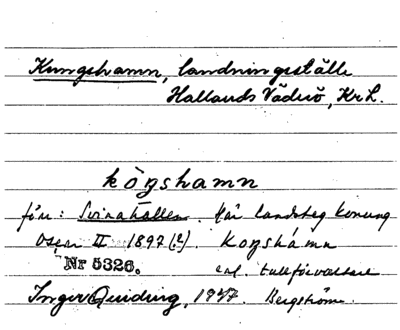 Kungshamn, landningsställe
Hallands Väderö, Kr L.
kò̀gshamn
förr: Svinahallen. Här landsteg konung
Oscar II 1897 (?). Kogshámn
Nr 5326. enl. tullförvaltare
Inger Quiding, 1947. Bergström.